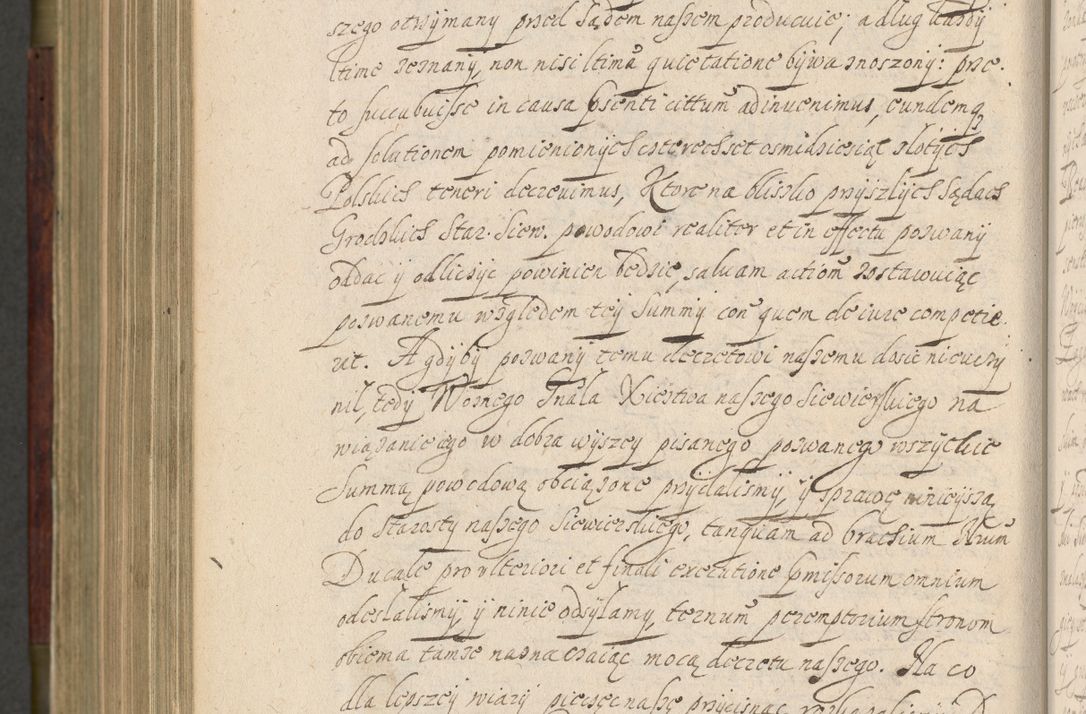 szego otrzymany przed Sądem naszem producuie; a dług każdy
ltime zeznany, non nisi ltima quietatione bywa znoszony: prze
to succubuisse in causa psenti cittum adinuenimus, eundemq
ad solutionem pomienionych czterechset osmidziesiąt złotych
Polskich teneri decreuimus, Ktore na blisko przyszłych Sądach
Grodzkich Star. Siew. powodowi realiter et in effectu pozwany
oddac y odliczyc powinien będzie, saluam actiom zostawuiąc
pozwanemu względem tey Summy con quem de iure competie
rit. A gdyby pozwany temu decretowi naszemu dosic nie uczy
nil, tedy Woznego Gnala Xięstwa naszego Siewierskiego na
wiązanie iego w dobra wyszey pisanego pozwanego wszytkie
Summą powodową obciązone przydalismy, y sprawę ninieyszą
do Starosty naszego Siewierskiego, tanquam ad brachium Nrum
Ducale pro vlteriori et finali executione pmissorum omnium
odeslalismy, y ninie odsylamy, ternum peremptorium stronom
obiema tamze naznaczaiąc mocą decretu naszego. Na co
dla lepszey wiary pieczęc naszę przycisnąc rozkazalismy. D